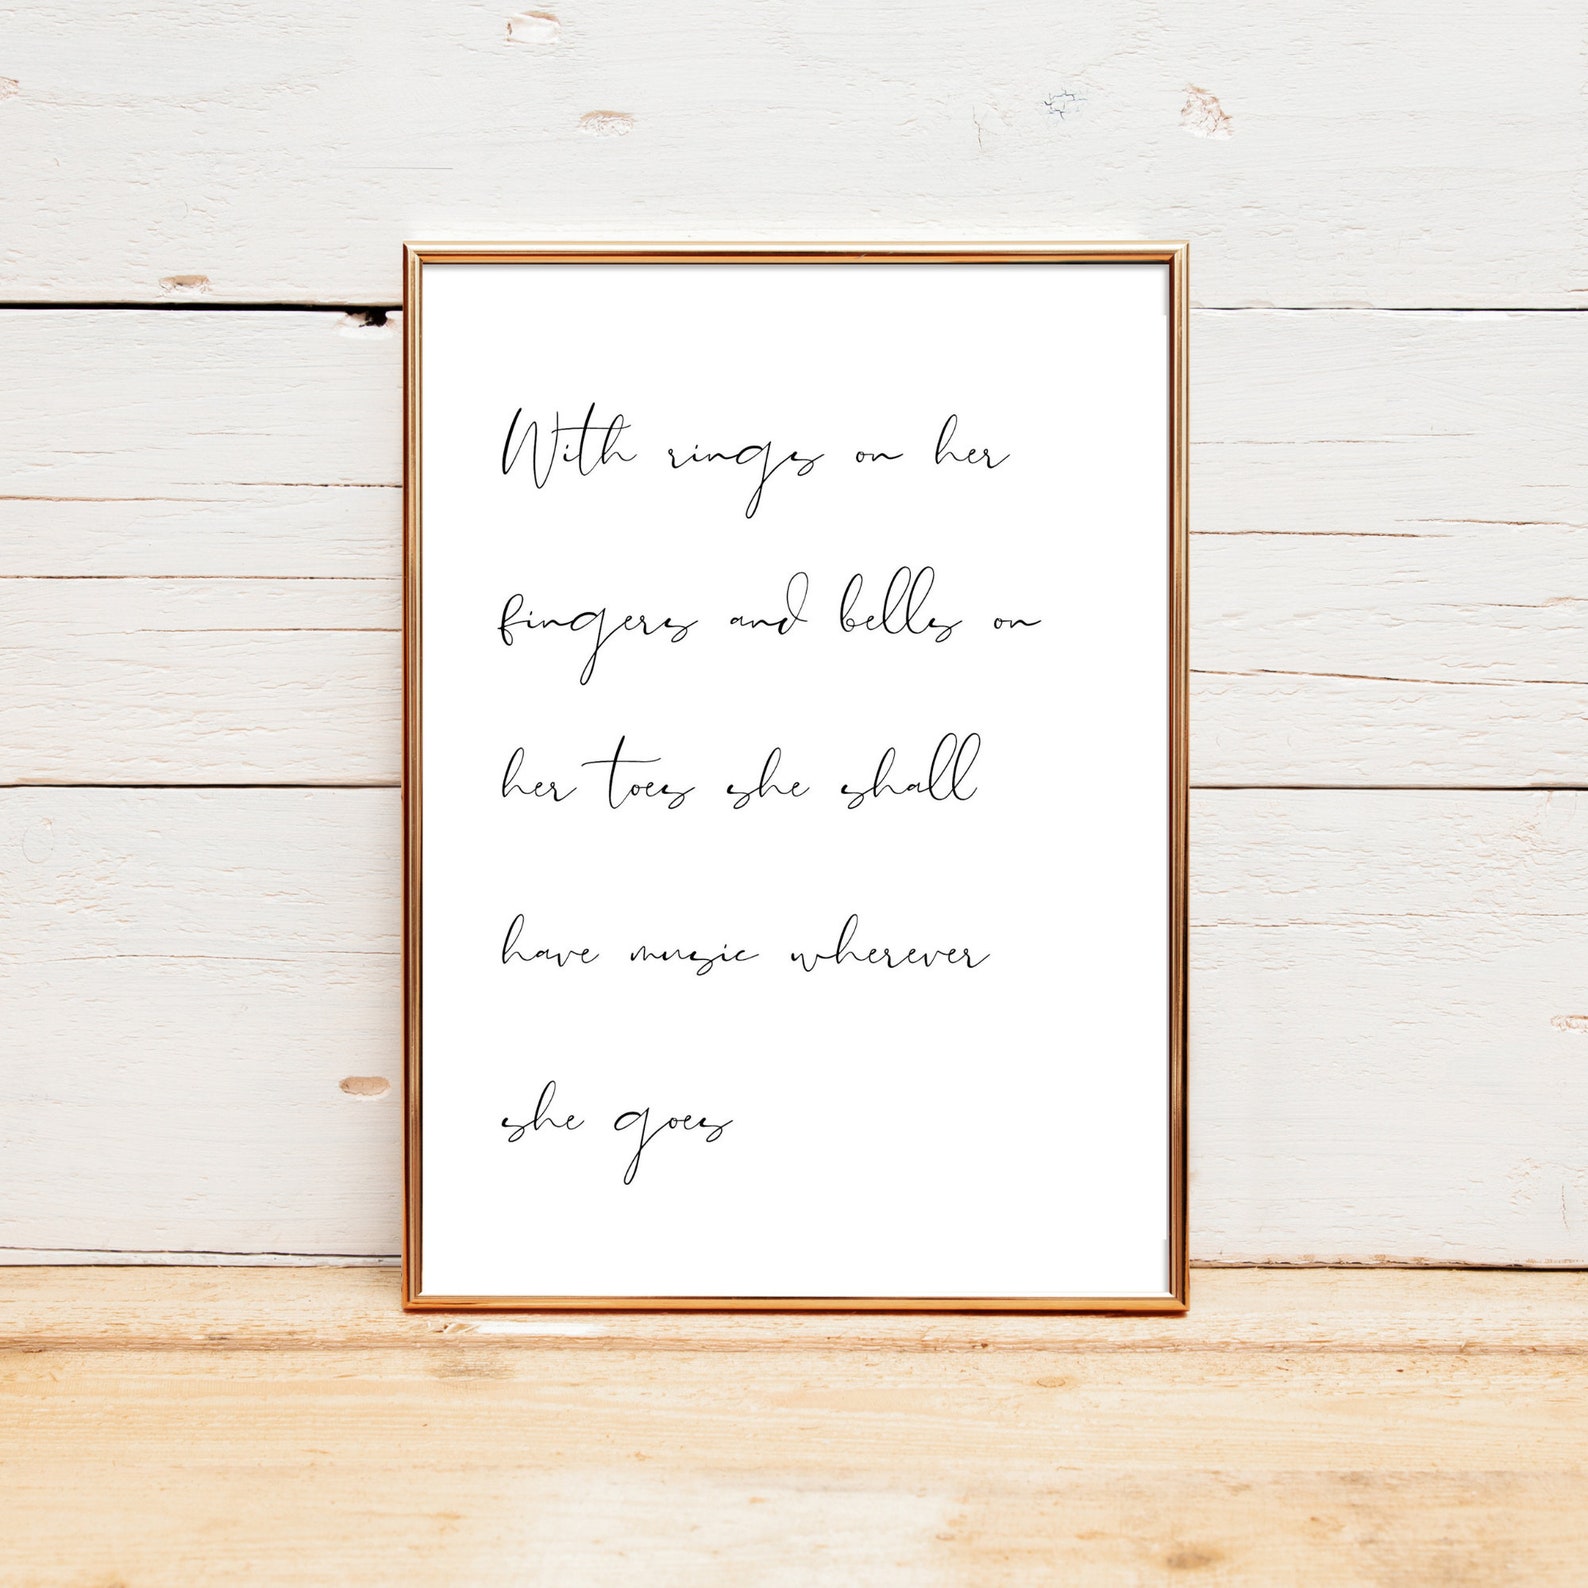 With rings on her
fingers and bells on
her toes she shall
have music wherever
she goes